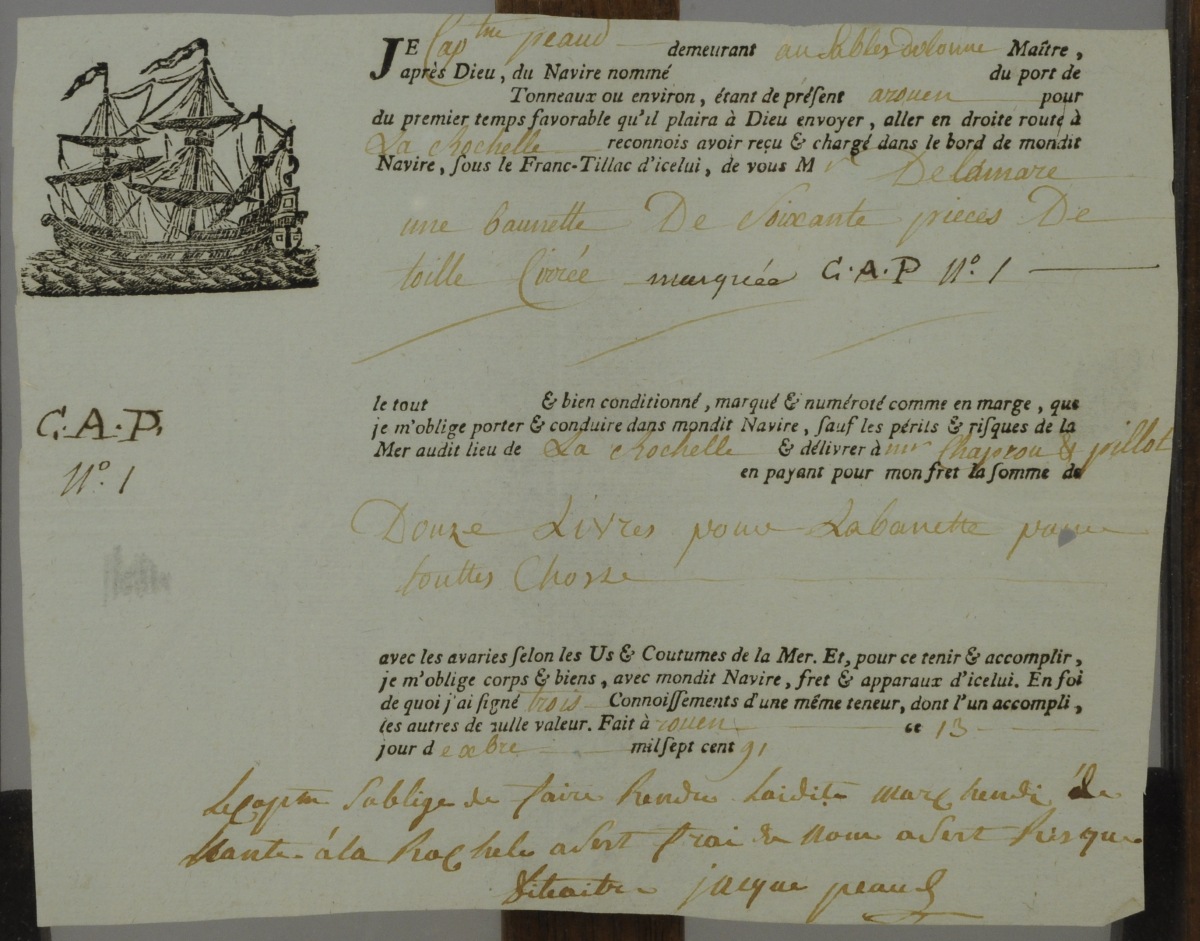 JE Cap.tne peaud demeurant au Sables dolonne Maître,
après Dieu, du Navire nommé du port de
Tonneaux ou environ, étant de préſent arouen pour
du premier temps favorable qu'il plaira à Dieu envoyer, aller en droite route à
La Rochelle reconnois avoir reçu & chargé dans le bord de mondit
Navire, ſous le Franc-Tillac d'icelui, de vous M r Delamare
une bannette De Soixante pieces De
toille Cirée marquée C.A.P N.º 1
C.A.P.
N.º 1
le tout & bien conditionné, marqué & numéroté comme en marge, que
je m'oblige porter & conduire dans mondit Navire, ſauf les périls & riſques de la
Mer audit lieu de La Rochelle & délivrer à mrs Chapron & pillot
en payant pour mon fret la ſomme de
Douze Livres pour Labanette pour
touttes Chosse
avec les avaries ſelon les Us & Coutumes de la Mer. Et, pour ce tenir & accomplir,
je m'oblige corps & biens, avec mondit Navire, fret & apparaux d'icelui. En foi
de quoi j'ai ſigné trois Connoiſſements d'une même teneur, dont l'un accompli,
les autres de nulle valeur. Fait à rouen ce 13
jour d exbre milſept cent 91
Le Captne Soblige de faire Rendre Laidite marchendi de
Nante à la Rochele a Sest frai de Nome a Sest Risque
jacque peaud